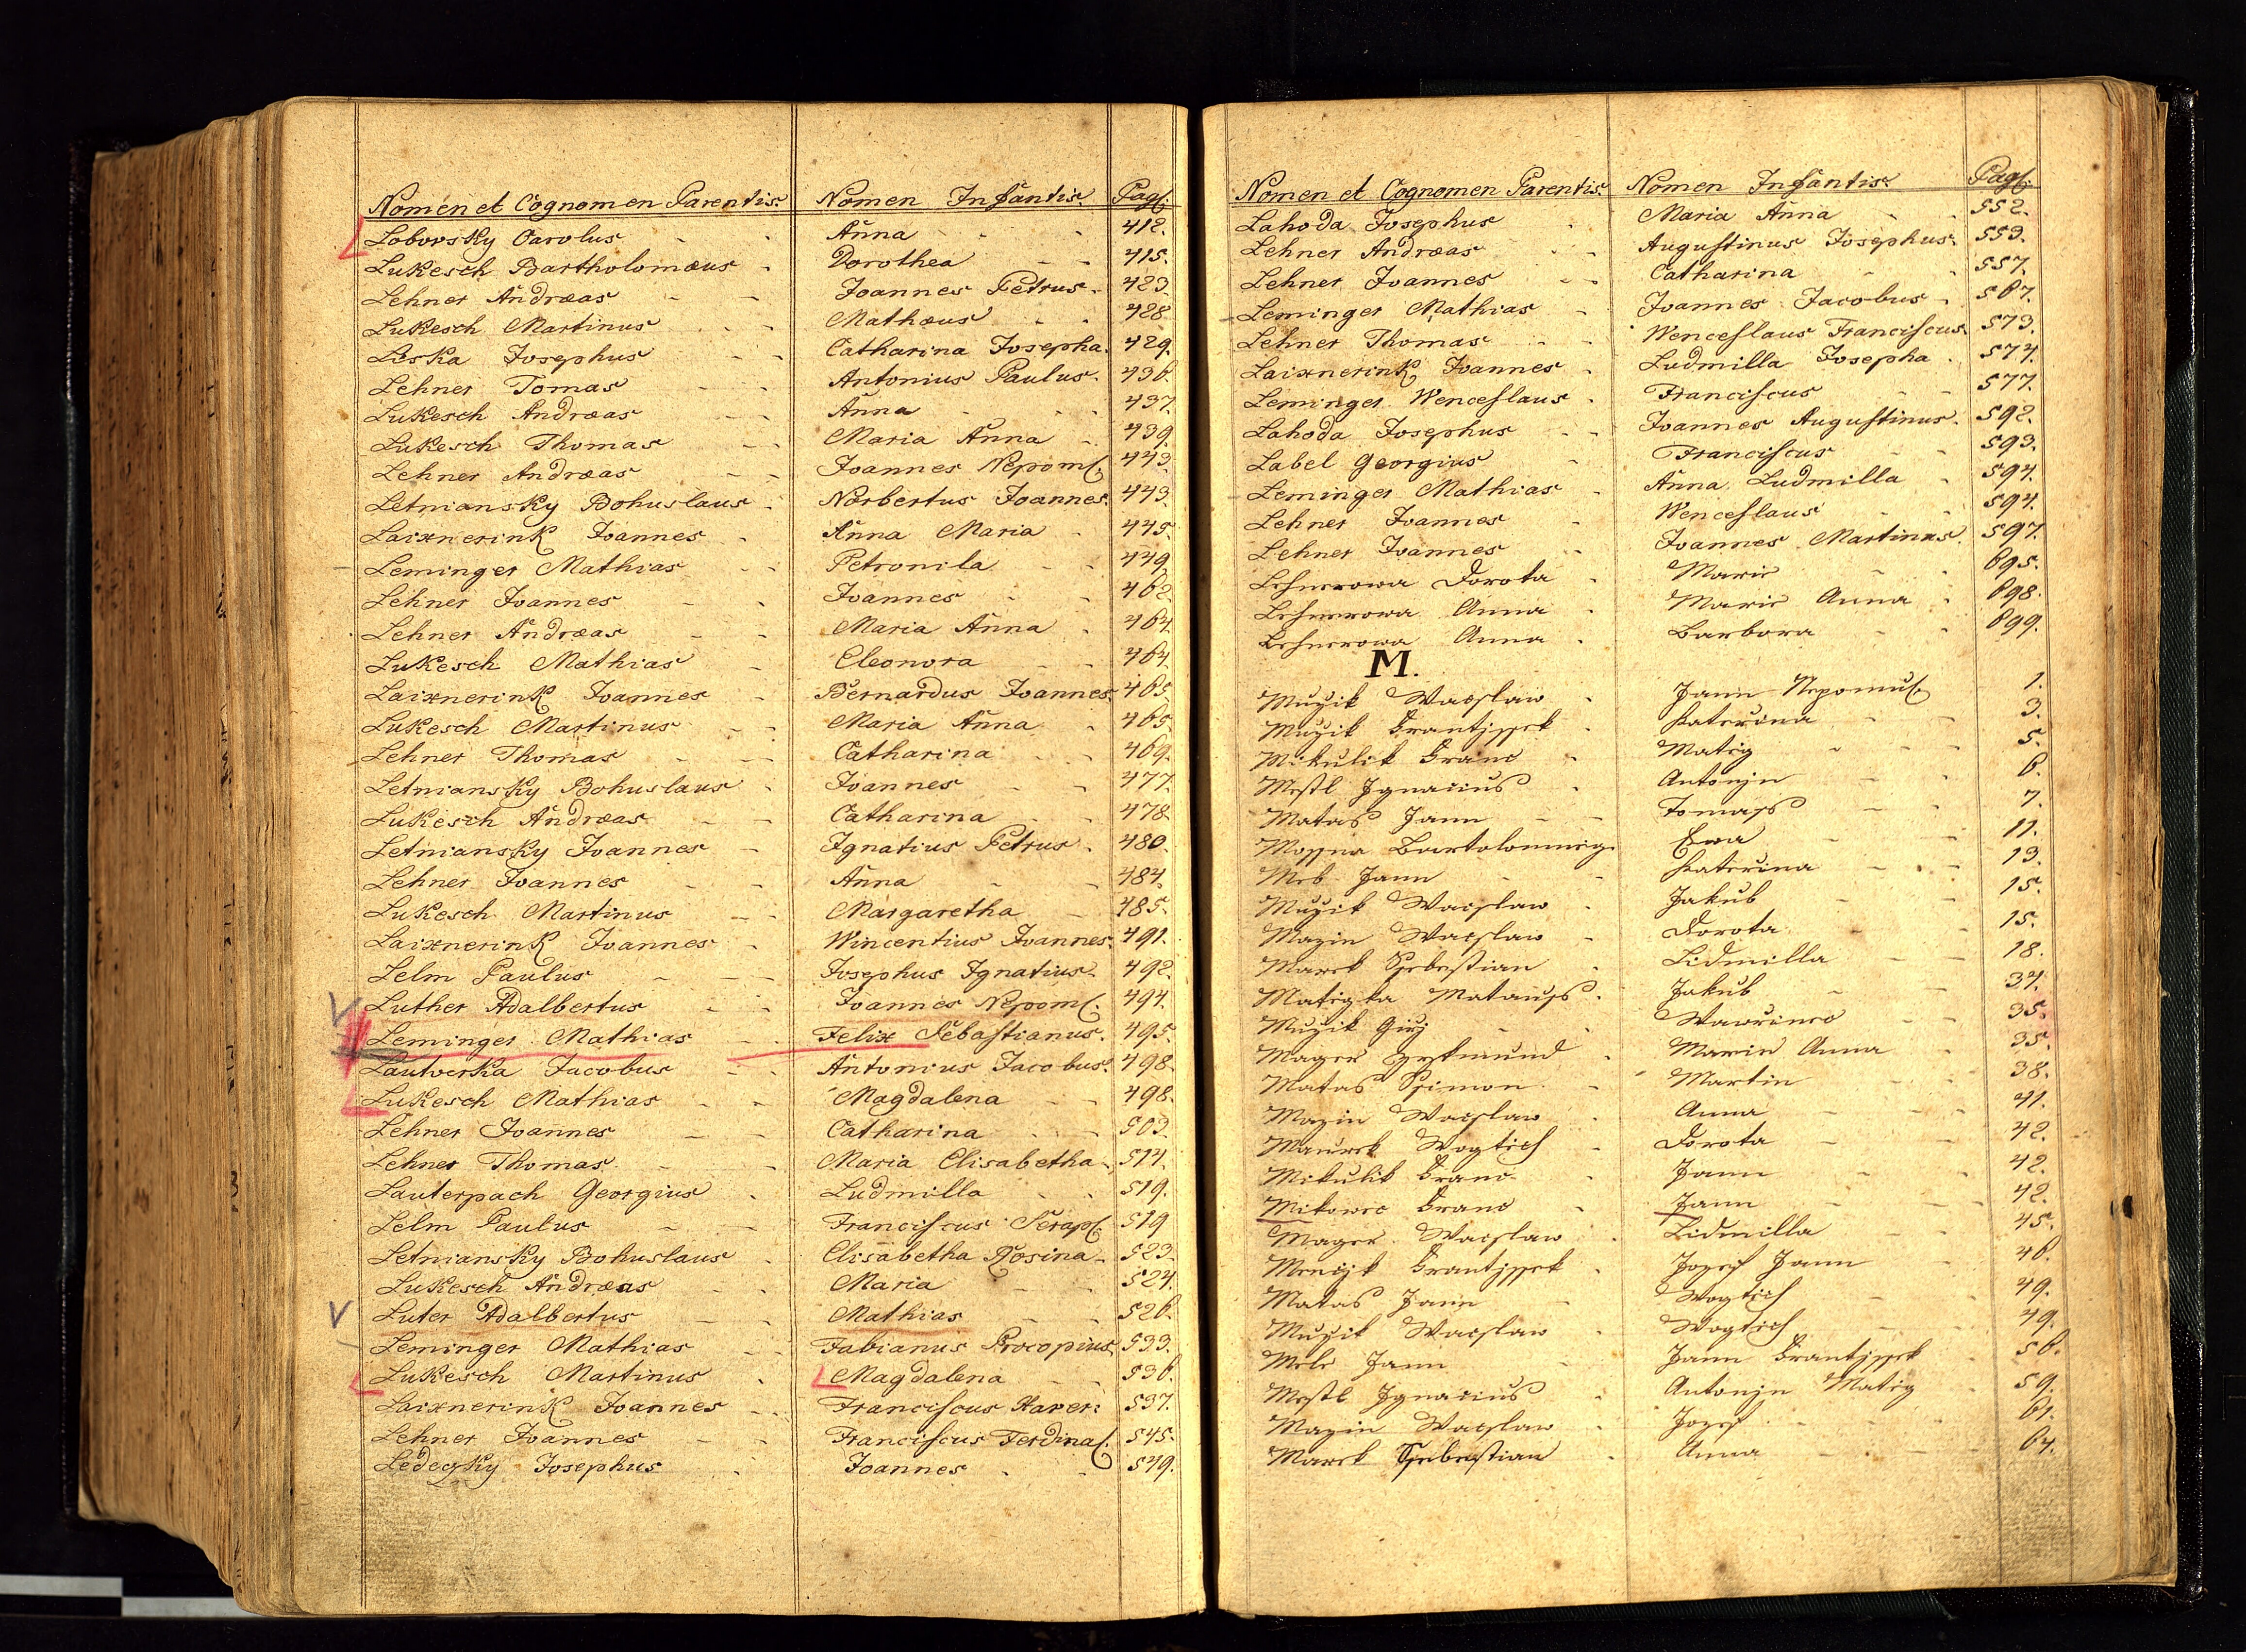 Nomen et Cognomen Parentis. Nomen Infantis. Pag.
Lobovsky Carolus - - Anna - - 412.
Lukesch Bartholomæus - Dorothea - - 415.
Lehner Andræas - - Joannes Petrus - 423.
Lukesch Martinus - - Mathæus - - 428.
Liska Josephus - - Catharina Josepha. 429.
Lehner Tomas - - Antonius Paulus. 436.
Lukesch Andræas - - Anna - - 437.
Lukesch Thomas - - Maria Anna - 439.
Lehner Andræas - - Joannes Nepom. 443.
Letniansky Bohuslaus - Norbertus Joannes. 443.
Laixnerink Joannes - Anna Maria - 445.
Leminger Mathias - - Petronila - - 449.
Lehner Joannes - - Joannes - - 462.
Lehner Andræas - - Maria Anna - 464.
Lukesch Mathias - Eleonora - - 464.
Laixnerink Joannes - Bernardus Joannes. 465.
Lukesch Martinus - - Maria Anna - 465.
Lehner Thomas - - Catharina - - 469.
Letniansky Bohuslaus - Joannes - - 477.
Lukesch Andræas - - Catharina - - 478.
Letniansky Joannes - Ignatius Petrus. 480.
Lehner Joannes - - Anna - - 484.
Lukesch Martinus - - Margaretha - 485.
Laixnerink Joannes - Wincentius Joannes. 491.
Lelm Paulus - - Josephus Ignatius. 492.
Luther Adalbertus - - Joannes Nepom. 494.
Leminger Mathias - - Felix Sebastianus. 495.
Lautverka Jacobus - - Antonius Jacobus. 498.
Lukesch Mathias - - Magdalena - - 498.
Lehner Joannes - - Catharina - - 503.
Lehner Thomas - - Maria Elisabetha. 514.
Lauterpach Georgius - Ludmilla - - 519.
Lelm Paulus - - Franciscus Serap. 519
Letniansky Bohuslaus - Elisabetha Rosina - 523.
Lukesch Andræas - - Maria - - 524.
Luter Adalbertus - - Mathias - - 526.
Leminger Mathias - - Fabianus Procopius 533.
Lukesch Martinus - Magdalena - - 536.
Laixnerink Joannes - Franciscus Xaver: 537.
Lehner Joannes - - Franciscus Ferdina. 545.
Ledeczky Josephus - Joannes - - 549.
Nomen et Cognomen Parentis. Nomen Infantis. Pag.
Lahoda Josephus - Maria Anna - - 552.
Lehner Andræas - - Augustinus Josephus. 553.
Lehner Joannes - - Catharina - - 557.
Leminger Mathias - Joannes Jacobus - 567.
Lehner Thomas - - Wenceslaus Franciscus. 573.
Laixnerink Joannes - Ludmilla Josepha - 574.
Leminger Wenceslaus - Franciscus - - 577.
Lahoda Josephus - - Joannes Augustinus. 592.
Label Georgius - Franciscus - - 593.
Leminger Mathias - Anna Ludmilla - 594.
Lehner Joannes - Wenceslaus - - 594.
Lehner Joannes - - Joannes Martinus. 597.
Lehnerowa Dorota - Marie - - 695.
Lehnerowa Anna - Marie Anna - 698.
Lehnerowa Anna - Barbora - - 699.
M.
Muzik Waclaw - Jann Nepomu. 1.
Muzik Frantissek - Katerina - - 3.
Mikulik Franc - Matieg - - 5.
Mestl Ignacius - Antonjn - - 6.
Matas Jann - - Tomass - - 7.
Mossna Bartolomieg Ewa - - 11.
Meb Jann - - Katerina - - 13.
Muzik Waclaw - Jakub - - 15.
Mazin Waclaw - Dorota - - 15.
Marek Ssebestian - Lidmilla - - 18.
Matigka Matauss - Jakub - - 34.
Muzik Girj - - Wawrinec - - 35.
Mager Zykmund - Marie Anna - 35.
Matas Ssimon - Martin - - 38.
Mazin Waclaw - Anna - - 41.
Maurek Wogtiech - Dorota - - 42.
Mikulik Franc - Jann - - 42.
Mikowec Franc - Jann - - 42.
Mager Waclaw - Lidmilla - - 45.
Mencik Frantissek - Jozef Jann - 46.
Matas Jann - Wogtiech - - 49.
Muzik Waclaw - Wogtiech - - 49.
Mele Jann - Jann Frantissek - 56.
Mestl Ignacius - Antonjn Matieg - 59.
Mazin Waclaw - Jozef - - 61.
Marek Ssebestian - Anna - - 64.